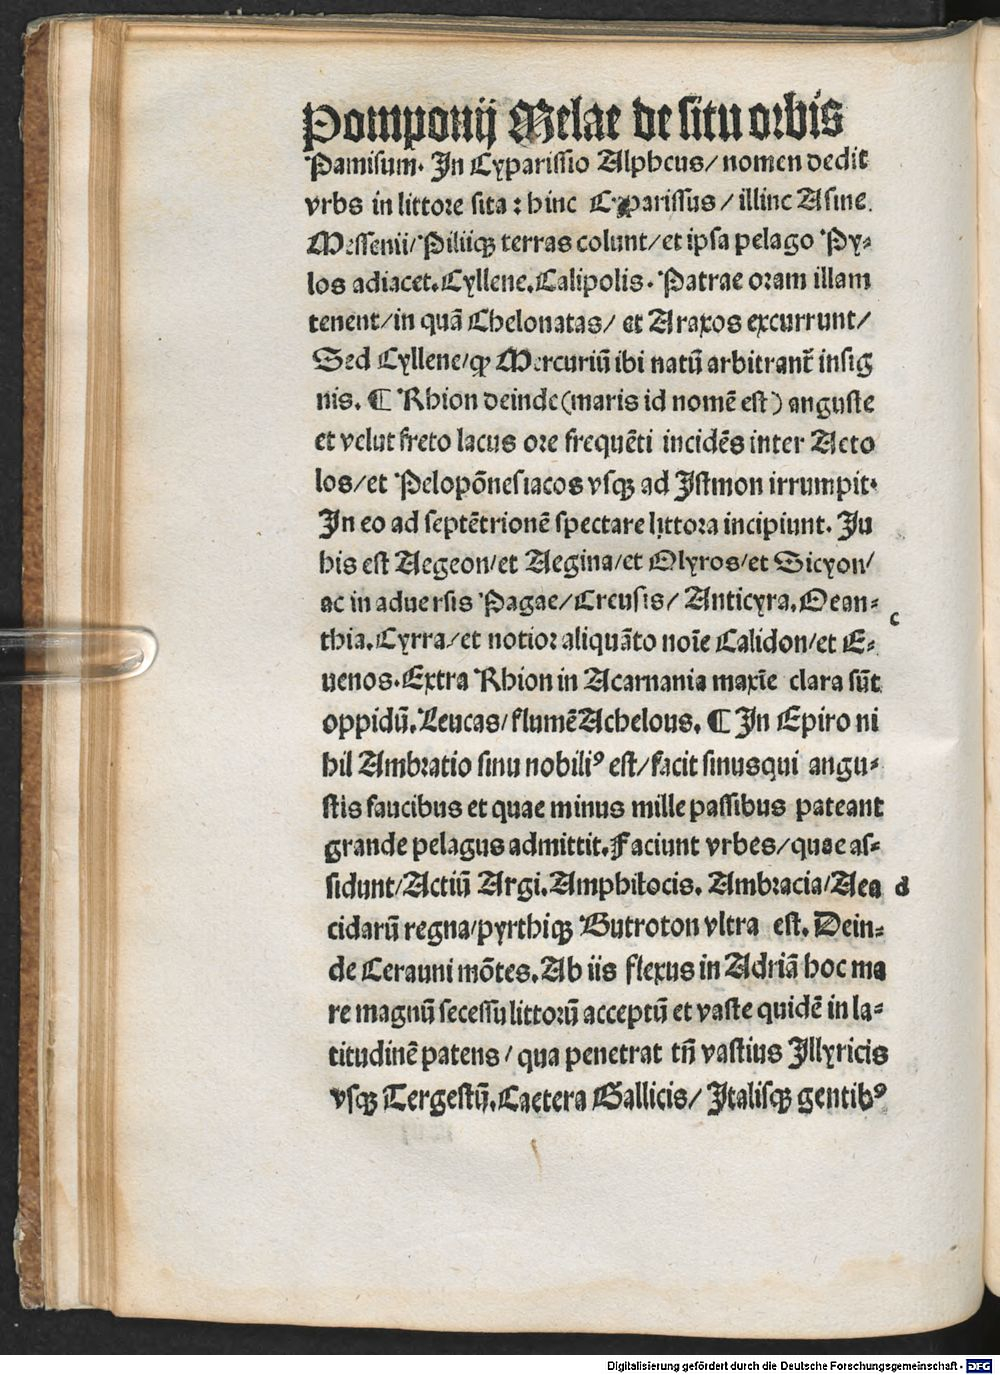 Pomponij Melae de situ orbis
Pamisum. In Cyparissio Alpheus/ nomen dedit
vrbs in littore sita : hinc Cyparissus / illinc Asine.
Messenii/ Piliiqꝫ terras colunt/ et ipsa pelago Py⸗
los adiacet. Cyllene. Calipolis. Patrae oram illam
tenent/ in quā Chelonatas/ et Araxos excurrunt/
Sed Cyllene/ ꝙ Mercuriū ibi natū arbitrant᷑ insig
nis. ¶ Rhion deinde (maris id nomē est) anguste
et velut freto lacus ore frequēti incidēs inter Aeto
los/ et Pelopōnesiacos vsqꝫ ad Istmon irrumpit.
In eo ad septētrionē spectare littora incipiunt. In
his est Aegeon/ et Aegina/ et Olyros/ et Sicyon/
ac in aduersis Pagae/ Creusis/ Anticyra. Oean⸗
c
thia. Cyrra/ et notior aliquāto noīe Calidon/ et E⸗
uenos. Extra Rhion in Acarnania maxīe clara sūt
oppidū. Leucas/ flumē Achelous. ¶ In Epiro ni
hil Ambratio sinu nobiliꝰ est/ facit sinusqui angu⸗
stis faucibus et quae minus mille passibus pateant
grande pelagus admittit. Faciunt vrbes/ quae as⸗
sidunt/ Actiū Argi. Amphilocis. Ambracia/ Aea
d
cidarū regna/ pyrthiqꝫ Butroton vltra est. Dein⸗
de Cerauni mōtes. Ab iis flexus in Adriā hoc ma
re magnū secessu littorū acceptū et vaste quidē in la⸗
titudinē patens / qua penetrat tn̄ vastius Illyricis
vsqꝫ Tergestū. Caetera Gallicis/ Italisqꝫ gentibꝰ
Digitalisierung gefördert durch die Deutsche Forschungsgemeinschaft - DFG